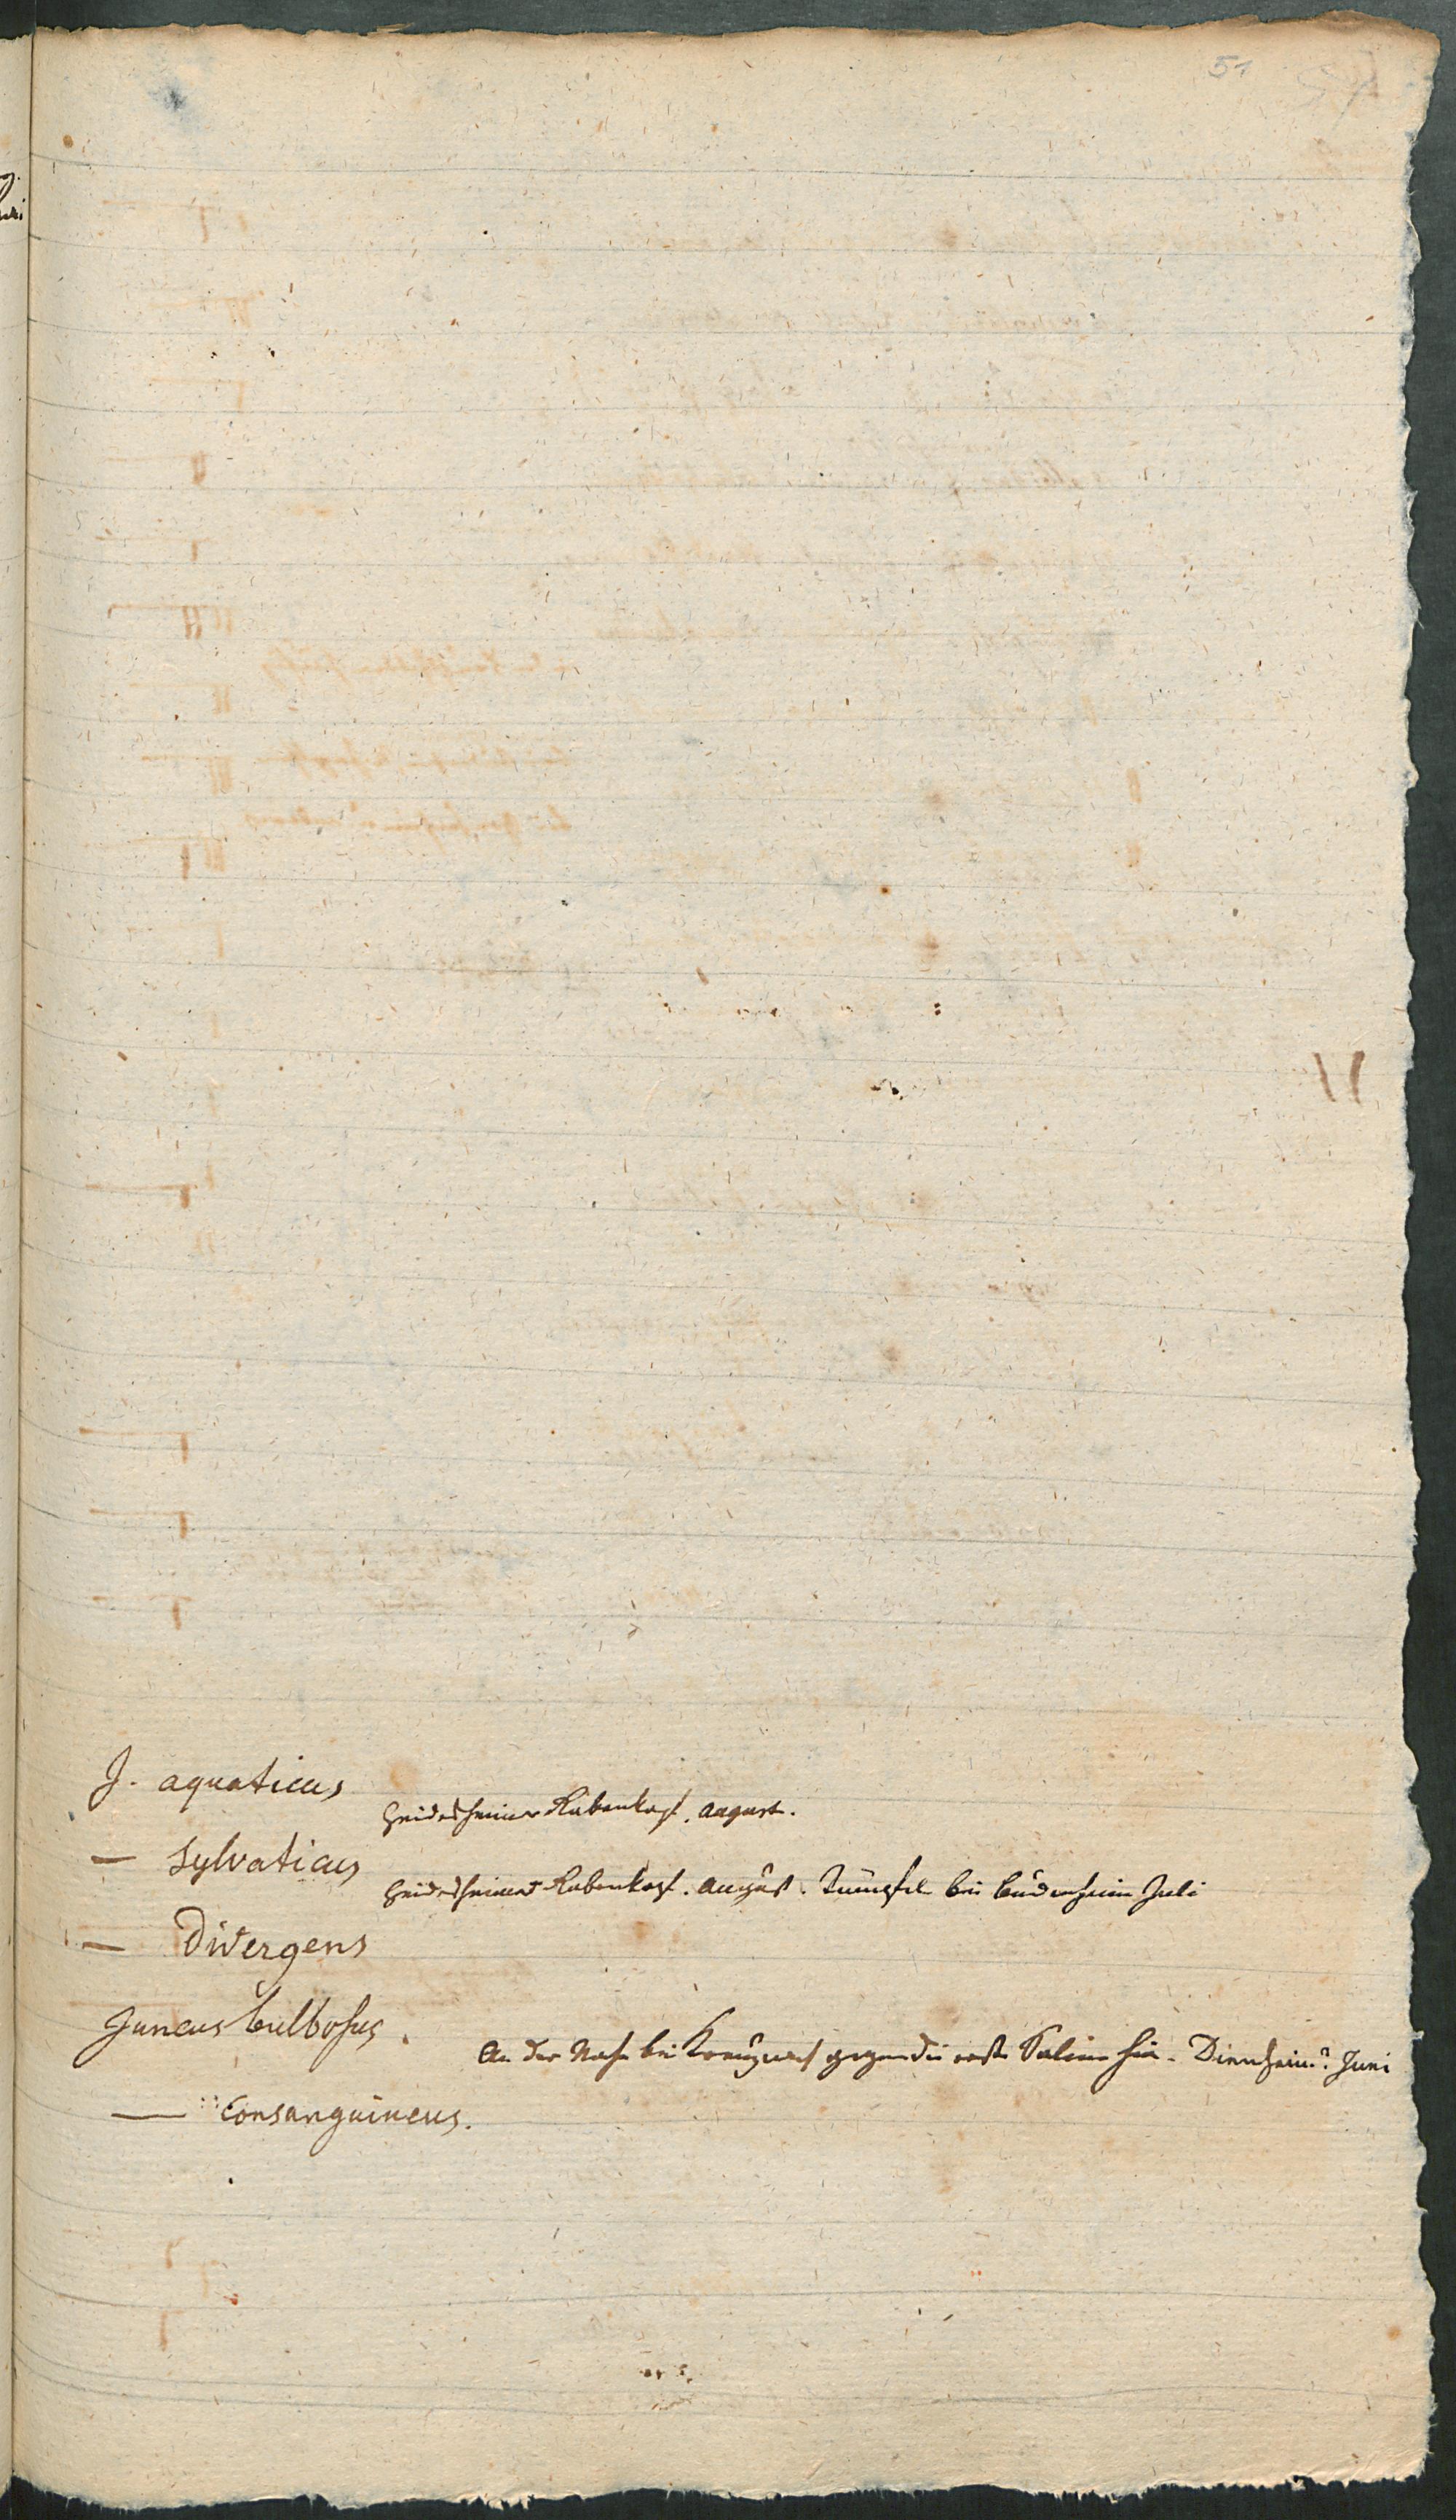 51
J. aquaticus
Heidesheimer Rabenkopf. August.
— Sylvaticus
Heidesheimer Rabenkopf. August. Tümpfel bei Büdenheim Juli
— Divergens
Juncus bulbosus.
An der Nahe bei Kreuznach gegen die erste Saline hin. Dienheim? Juni
— Consanguineus.